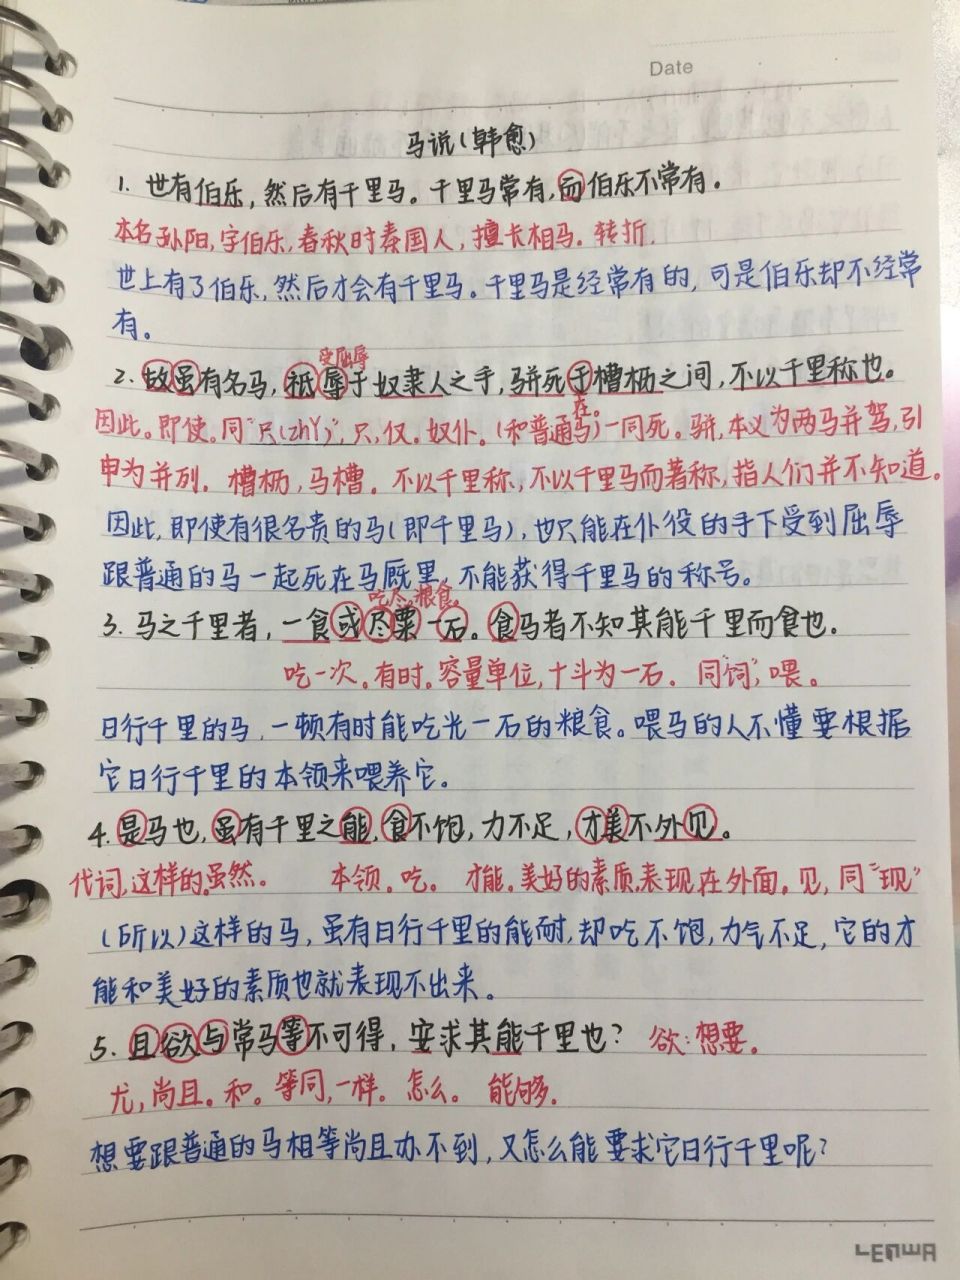 Date
马说(韩愈)
1. 世有伯乐，然后有千里马。千里马常有，而伯乐不常有。
本名孙阳，字伯乐，春秋时秦国人，擅长相马。转折.
世上有了伯乐，然后才会有千里马。千里马是经常有的，可是伯乐却不经常
有。
受屈辱
2. 故虽有名马，祗辱于奴隶人之手，骈死于槽枥之间，不以千里称也。
在。
因此。即使。同“只(zhǐ)”，只，仅。奴仆。(和普通马)一同死。骈，本义为两马并驾，引
申为并列。槽枥，马槽。不以千里称，不以千里马而著称，指人们并不知道。
因此，即使有很名贵的马(即千里马)，也只能在仆役的手下受到屈辱
跟普通的马一起死在马厩里，不能获得千里马的称号。
吃尽。粮食。
3. 马之千里者，一食或尽粟一石。食马者不知其能千里而食也。
吃一次。有时。容量单位，十斗为一石. 同“饲”，喂。
日行千里的马，一顿有时能吃光一石的粮食。喂马的人不懂要根据
它日行千里的本领来喂养它。
4. 是马也，虽有千里之能，食不饱，力不足，才美不外见。
代词，这样的。虽然。 本领。吃。 才能。美好的素质。表现在外面。见，同“现”
(所以)这样的马，虽有日行千里的能耐，却吃不饱，力气不足，它的才
能和美好的素质也就表现不出来。
5. 且欲与常马等不可得，安求其能千里也？ 欲:想要。
尤，尚且。和。等同，一样。怎么。 能够.
想要跟普通的马相等尚且办不到，又怎么能要求它日行千里呢？
LENWA